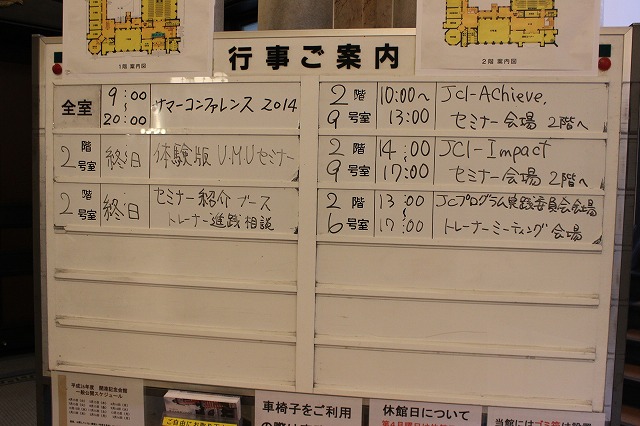 1階 案内図
2階 案内図
行事ご案内
全室 9:00～20:00 サマーコンファレンス 2014
2階 号室 終日 体験版 U.M.U セミナー
2階 号室 終日 セミナー紹介ブース
トレーナー進践相談
2階 9号室 10:00～13:00 JCI-Achieve.
セミナー会場 2階へ
2階 9号室 14:00～17:00 JCI-Impact
セミナー会場 2階へ
2階 6号室 13:00～17:00 JCプログラム実践委員会会場
トレーナーミーティング会場
平成26年度 開港記念会館
一般公開スケジュール
車椅子をご利用
休館日について
当館にはゴミ箱は設置